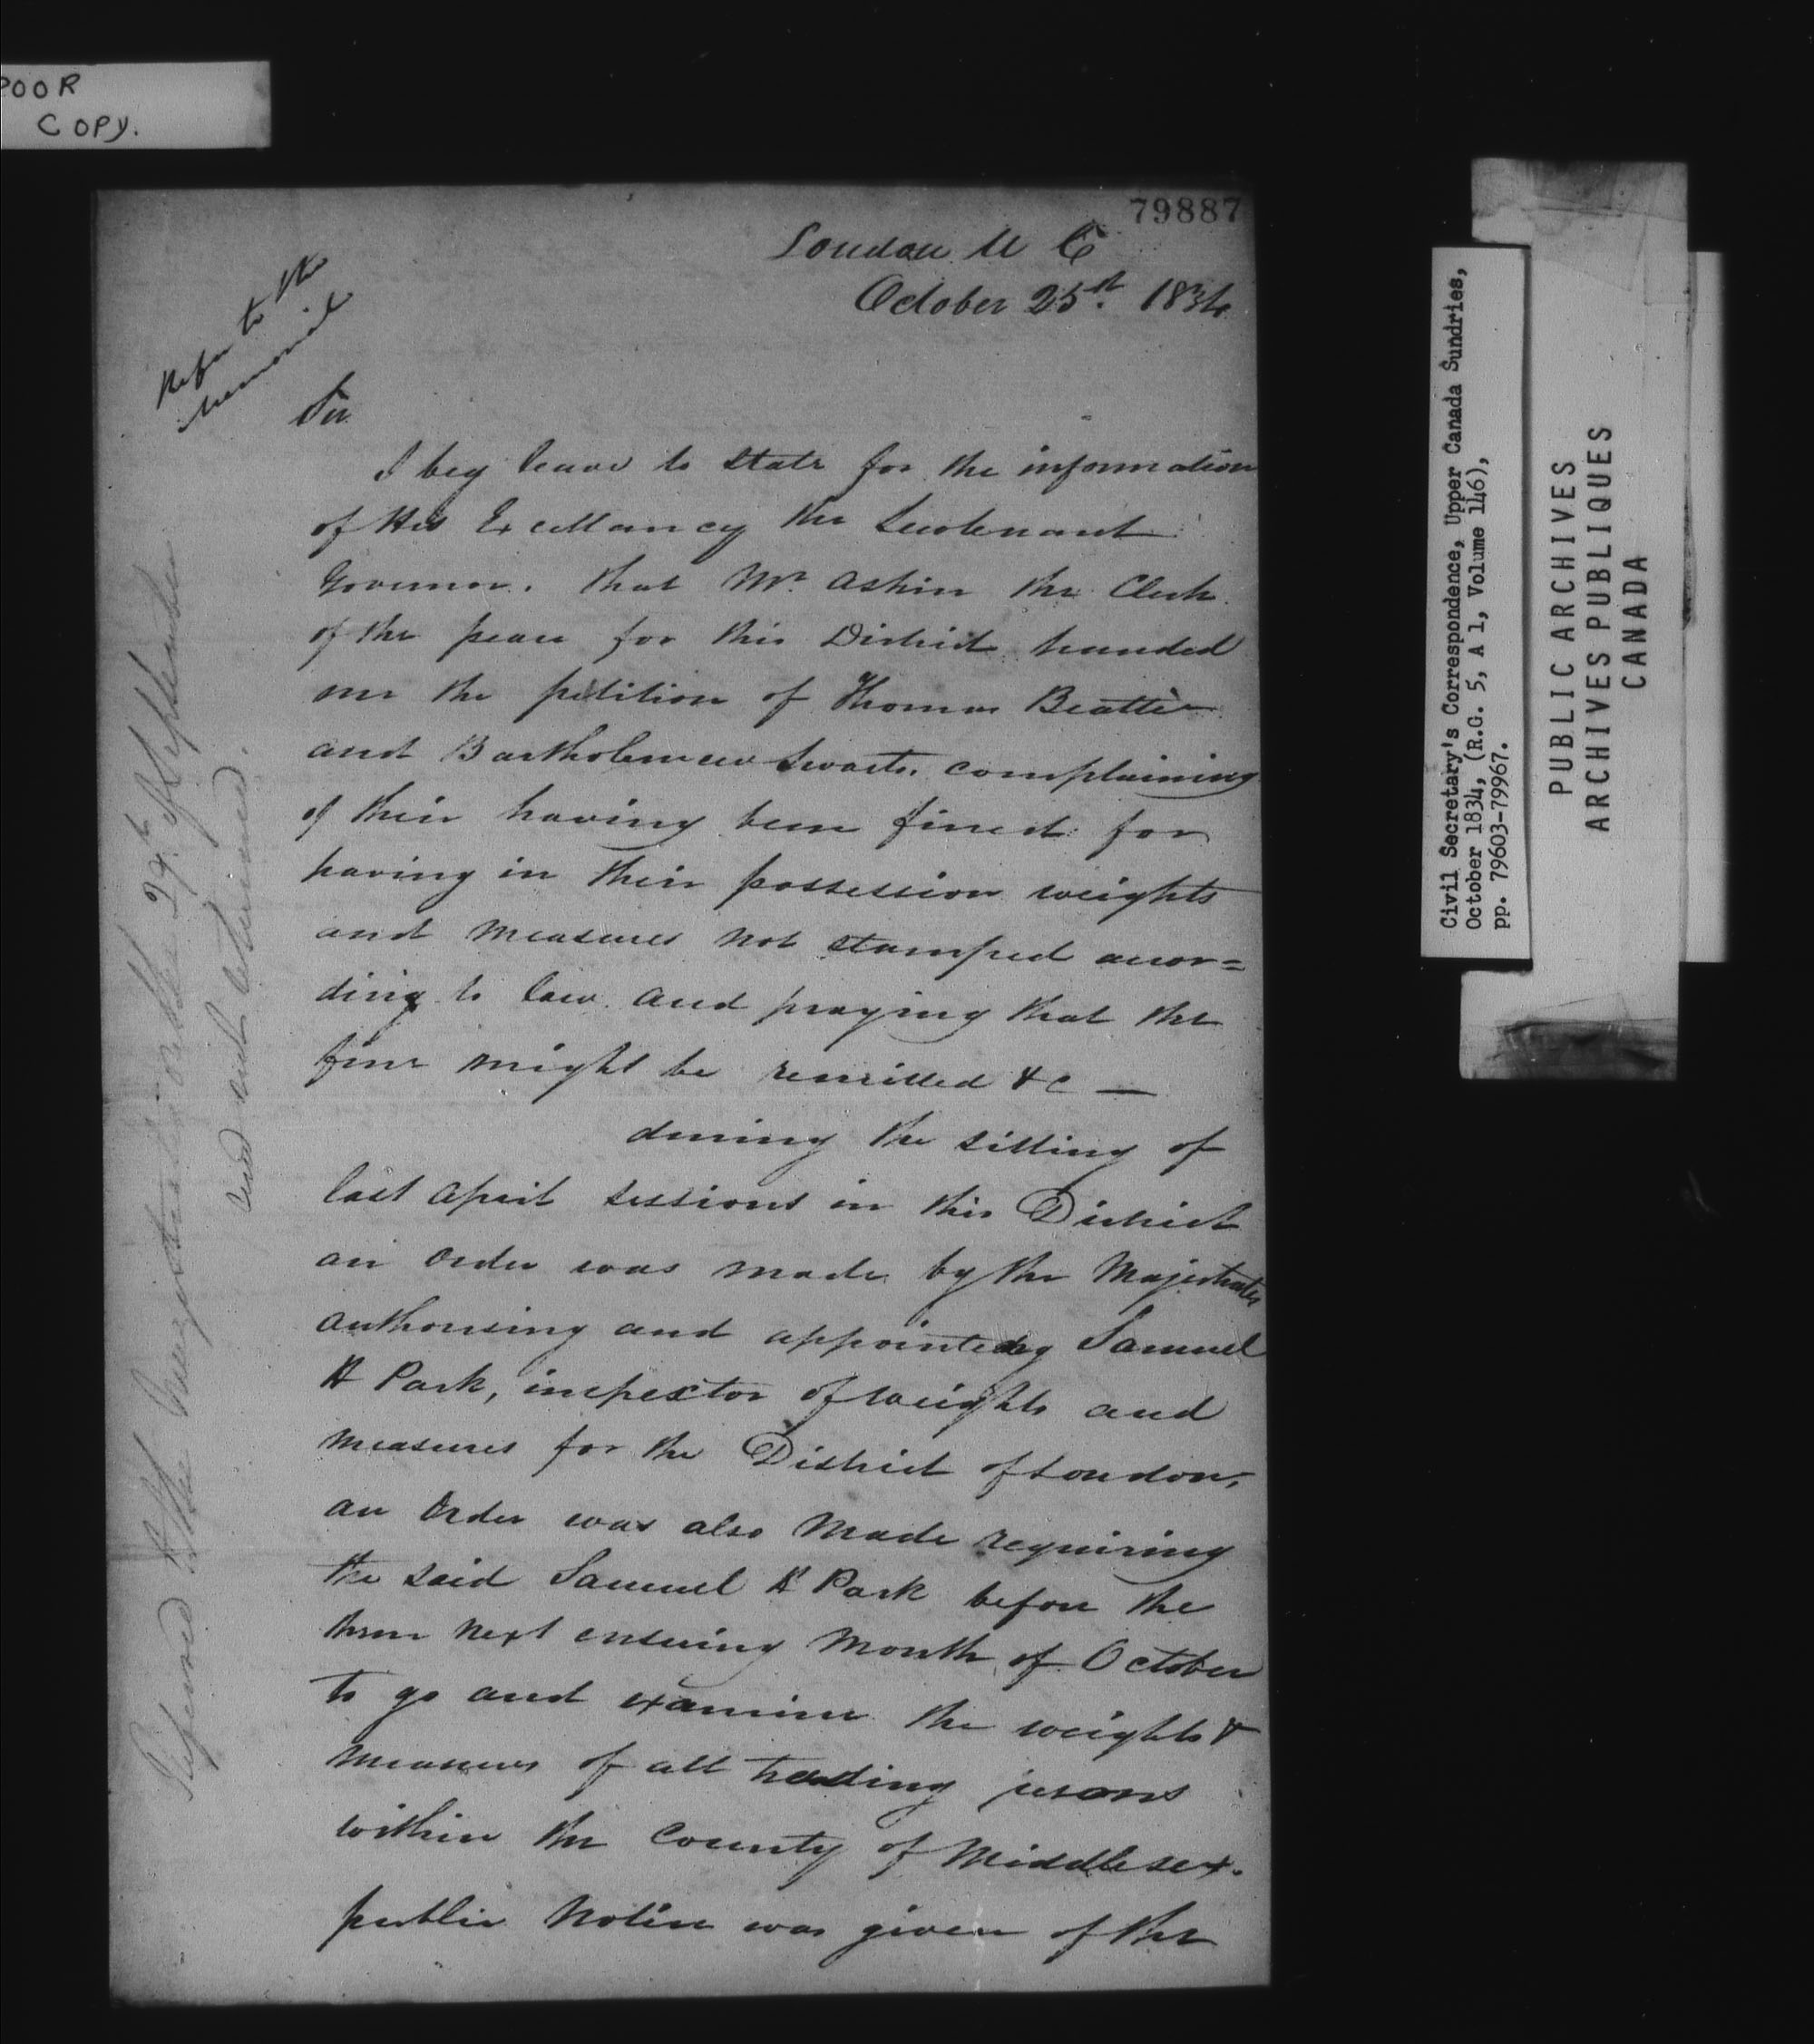 POOR
COPY.
79887
London U C
October 25th. 1834
Refer to the
memorial
Sir
I beg leave to state for the information
of His Excellancy the Lieutenant
Governor. that Mr. Askin the Clerk
of the peace for this District handed
me the petition of Thomas Beattie
and Bartholomew Swarts. complaining
of their having been fined for
having in their possession weights
and measures not stamped accor=
ding to law. and praying that the
fine might be remitted &c —
during the sitting of
last April sessions in this District
an Order was made by the Majestrates
authorising and appointing Samuel
H Park, inspector of weights and
measures for the District of London,
an Order was also made requiring
the said Samuel H Park before the
then next ensuing Month of October
to go and examine the weights &
measures of all trading persons
within the County of Middlesex.
public Notice was given of the
Referred to the Magistrates 24th September
and not returned.
Civil Secretary's Correspondence, Upper Canada Sundries,
October 1834, (R.G. 5, A 1, Volume 146),
pp. 79603-79967.
PUBLIC ARCHIVES
ARCHIVES PUBLIQUES
CANADA